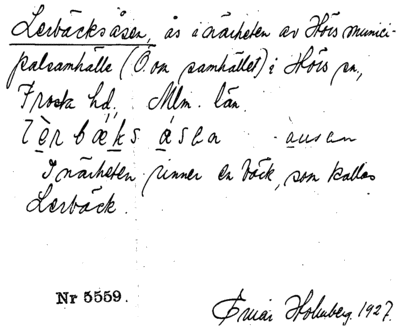 Lerbäcksåsen, ås i närheten av Hörs munici-
palsamhälle (Ö. om samhället) i Hörs sn,
Frosta hd. Mlm. län.
lèrbæksåsen åusen
I närheten rinner en bäck, som kallas
Lerbäck.
Nr 5559. Holmberg. 1927.